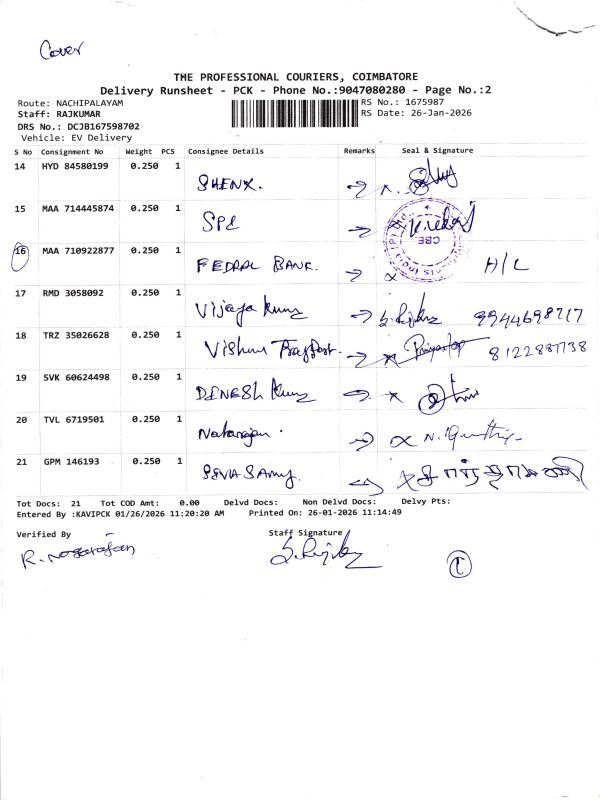 Cover
THE PROFESSIONAL COURIERS, COIMBATORE
Delivery Runsheet - PCK - Phone No.:9047080280 - Page No.:2
Route: NACHIPALAYAM RS No.: 1675987
Staff: RAJKUMAR RS Date: 26-Jan-2026
DRS No.: DCJB167598702
Vehicle: EV Delivery
S No Consignment No Weight PCS Consignee Details Remarks Seal & Signature
14 HYD 84580199 0.250 1 SHENX.
15 MAA 714445874 0.250 1 SPL
CBE
16 MAA 710922877 0.250 1 FEDRAL BANK. H/L
17 RMD 3058092 0.250 1 Vijaya Kumar 9944698717
18 TRZ 35026628 0.250 1 Vishnu 8122887738
19 SVK 60624498 0.250 1 DINESH Kumar
20 TVL 6719501 0.250 1 Natarajan.
21 GPM 146193 0.250 1 SIVA SAmy.
Tot Docs: 21 Tot COD Amt: 0.00 Delvd Docs: Non Delvd Docs: Delvy Pts:
Entered By :KAVIPCK 01/26/2026 11:20:20 AM Printed On: 26-01-2026 11:14:49
Verified By Staff Signature
R. Nagarajan